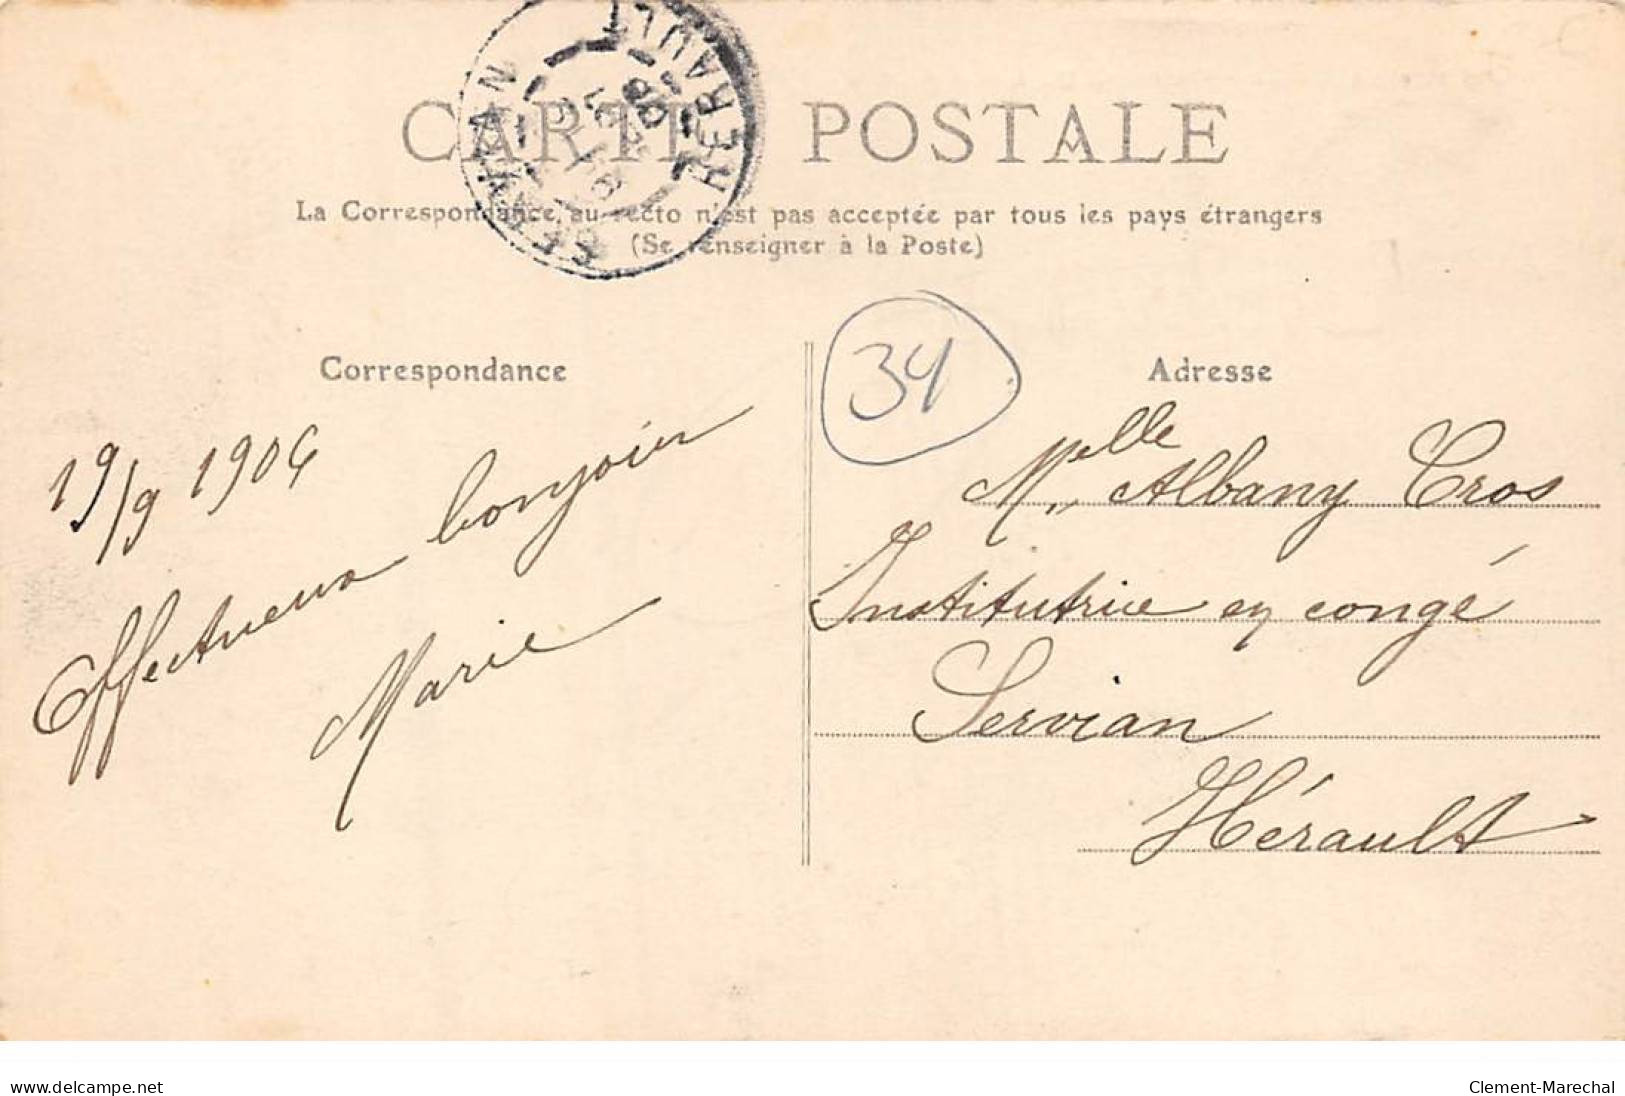 CARTE POSTALE
SERVIAN HERAULT
La Correspondance, au recto n'est pas acceptée par tous les pays étrangers
(Se renseigner à la Poste)
34
Correspondance
19/9 1904
Affectueux bonjour
Marie
Adresse
Melle Albany Cros
Institutrice en congé
Servian
Hérault
www.delcampe.net
Clement-Marechal